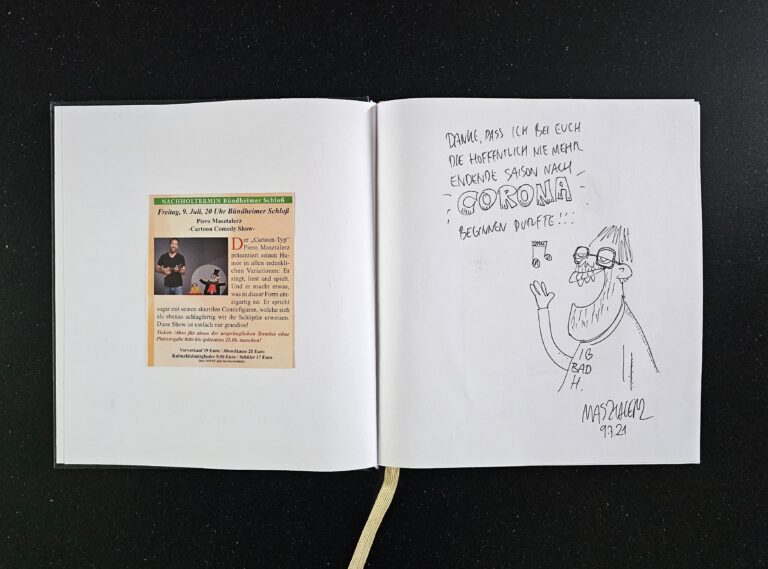 NACHHOLTERMIN Bündheimer Schloß
Freitag, 9. Juli, 20 Uhr Bündheimer Schloß
Piero Masztalerz
-Cartoon Comedy Show-
Der „Cartoon-Typ"
Piero Masztalerz
präsentiert seinen Hu-
mor in allen erdenkli-
chen Variationen: Er
singt, liest und spielt.
Und er macht etwas,
was in dieser Form ein-
zigartig ist. Er spricht
sogar mit seinen skurrilen Comicfiguren, welche sich
als ebenso schlagfertig wie ihr Schöpfer erweisen.
Diese Show ist einfach nur grandios!
Tickets für einen der ursprünglichen Termine ohne
bis spätestens 25.06. tauschen!
Vorverkauf 19 Euro / Abendkasse 21 Euro
Kulturklubmitglieder 9,50 Euro / Schüler 17 Euro
DANKE, DASS ICH BEI EUCH
DIE HOFFENTLICH NIE MEHR
ENDENDE SAISON NACH
CORONA
BEGINNEN DURFTE!!!
IG
BAD
H.
MASZTALERZ
9.7.21